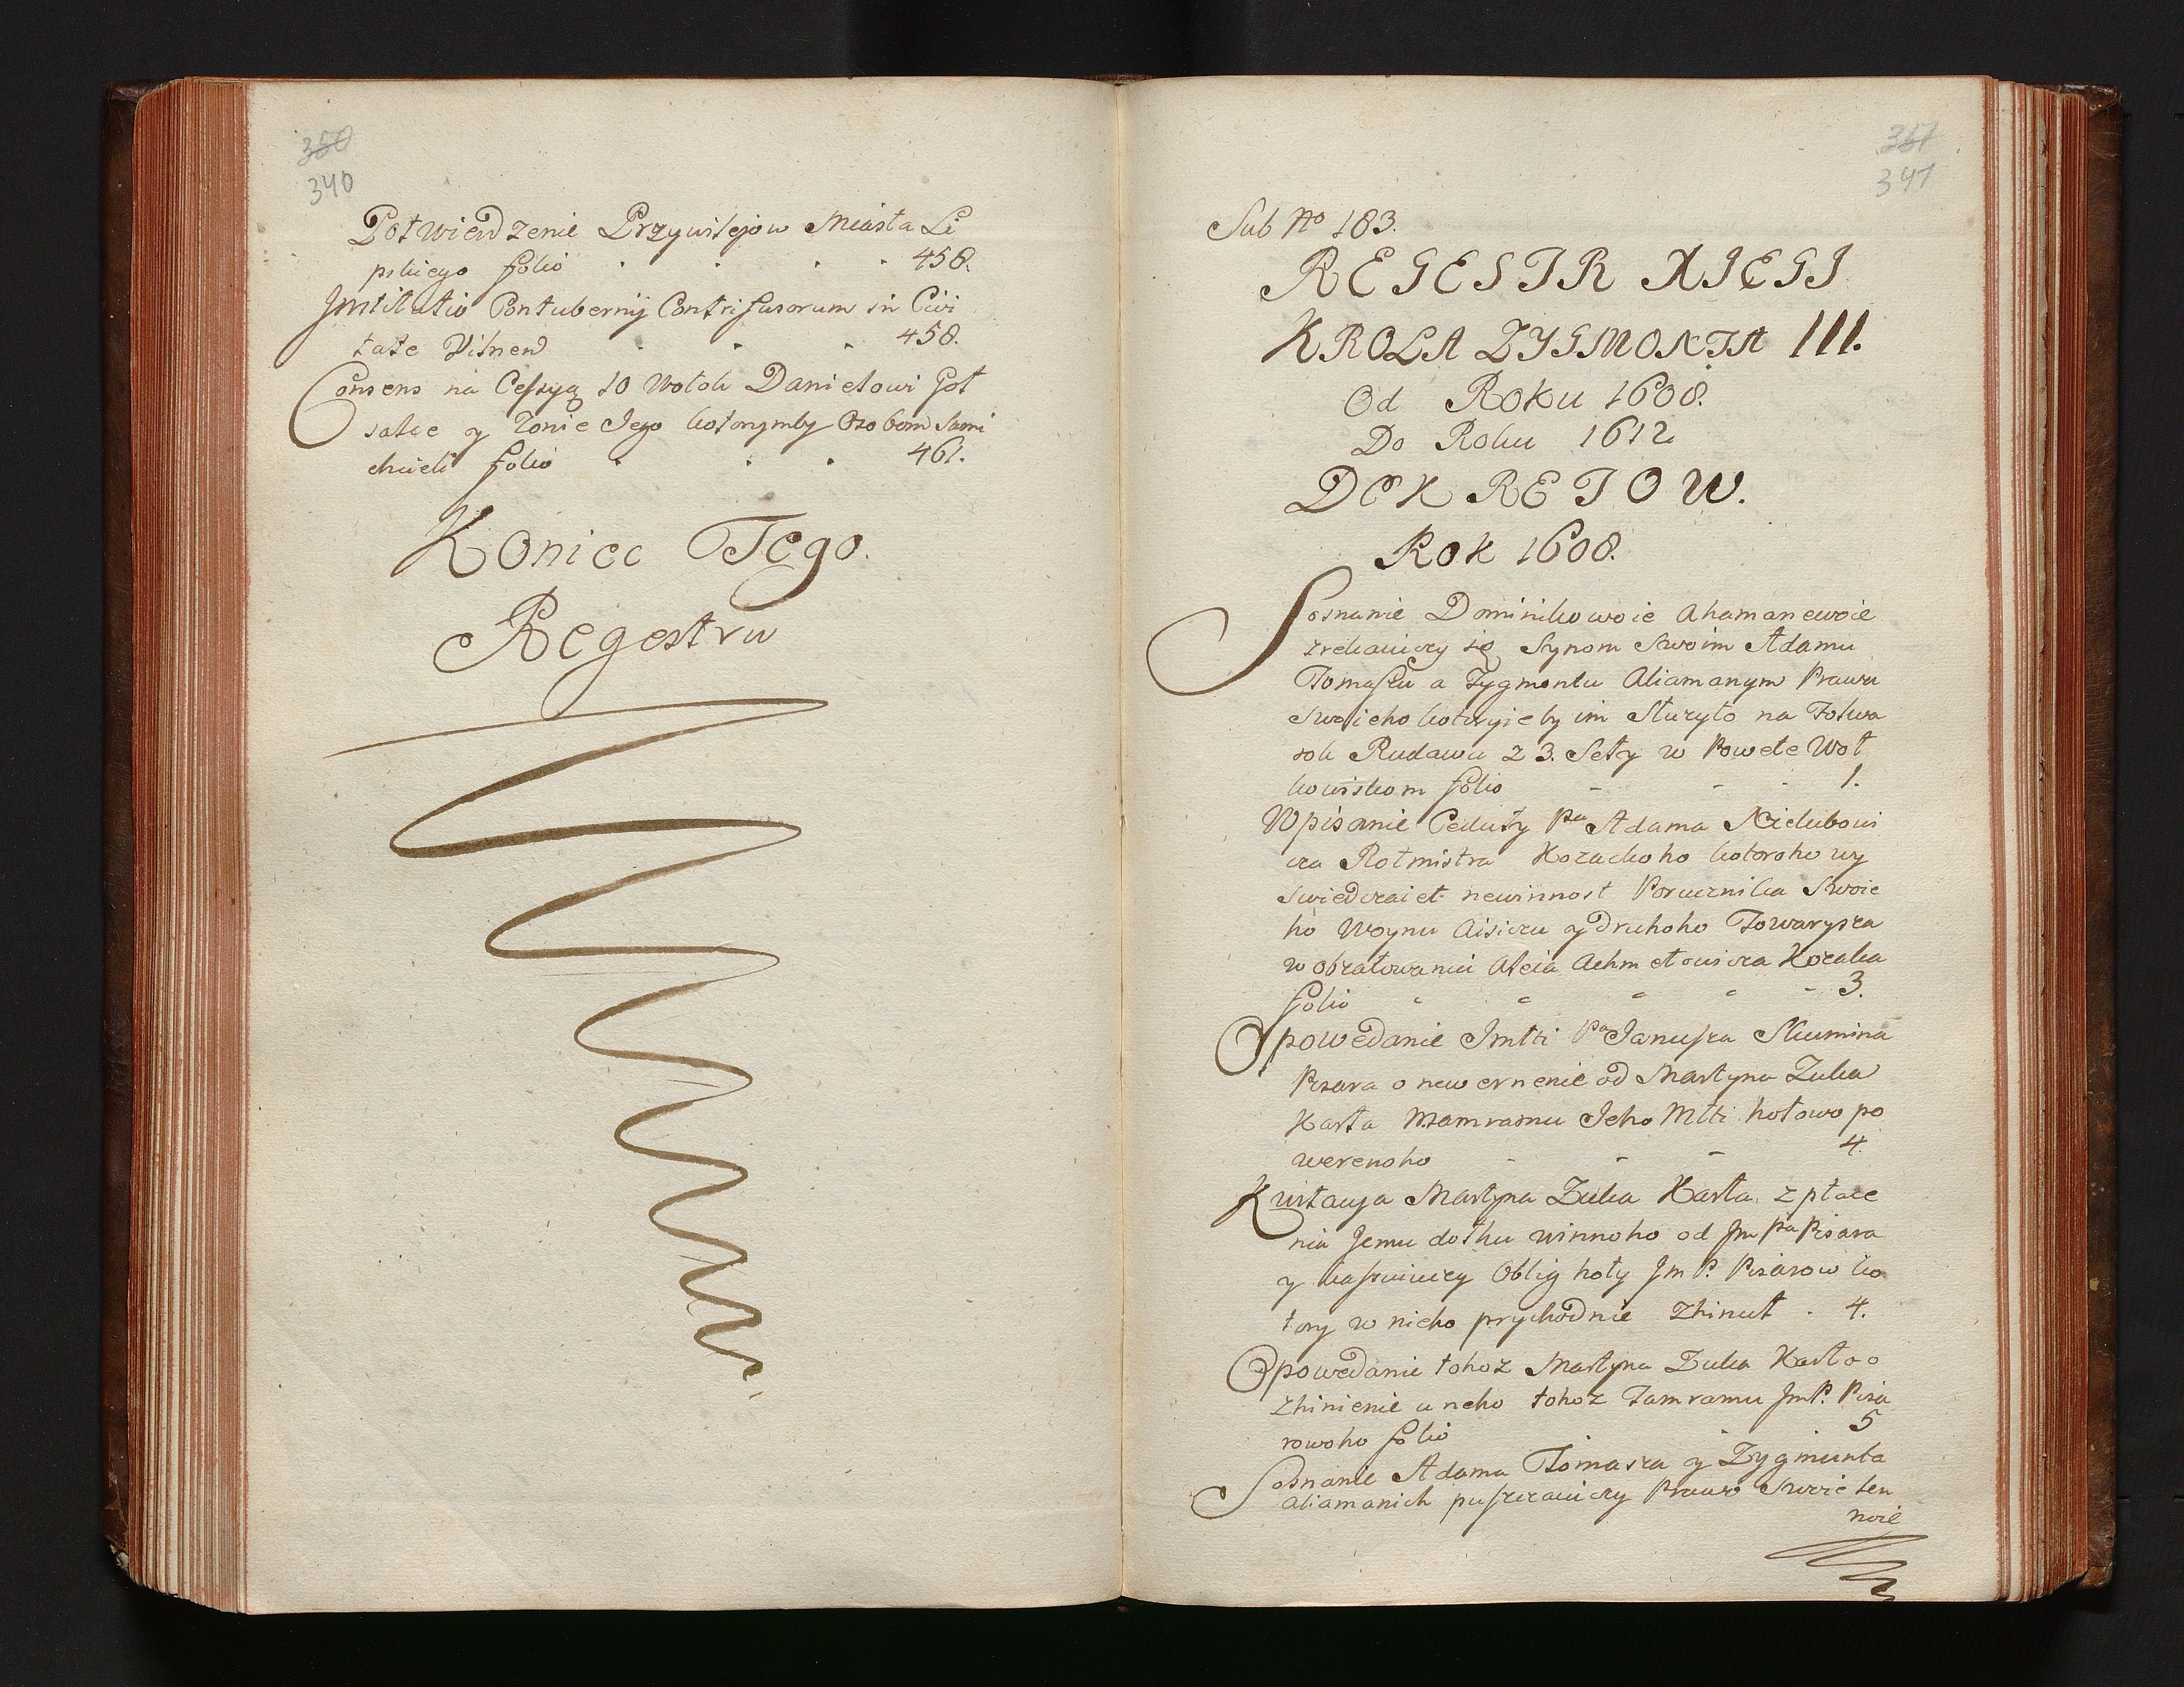 350
340
Potwierdzenie Przywilejow Miasta Li
pskiego folio . . . . 458.
Institutio Contubernij Centrifusorum in Civi
tate Vilnen . . . 458.
Consens na Cessyą 10 Wolok Danielowi Gol
salce y Zonie Jego kotorymby Osobom sami
chcieli folio . . . 461.
Koniec Tego
Regestru
351
341
Sub No 183.
REGESTR XIĘGI
KROLA ZYGMONTA III.
Od Roku 1608.
Do Roku 1612
DEKRETOW.
Rok 1608.
Soznanie Dominikowoie Ahamanewoie
zrekaiuczy się Synom Swoim Adamu
Tomaszu a Zygmontu Aliamanym Prawa
swoieho kotoryieby im służyło na Folwa
rok Rudawu z 3. Sely w Powete Woł
kowiskom folio - - - 1.
Wpisanie Ceduły Pa Adama Kielubowi
cza Rotmistra Kozackoho kotoroho wy
swiedczaiet newinnost Porucznika Swoie
ho Woynu Aisiczu y druhoho Towarysza
w obzałowaniu Aleia Achmetowicza Kozaka
folio - - - - - 3.
Opowedanie Jmłti Pa Janusza Skumina
Pisara o newernenie od Martyna Zuka
Karła Mamramu Jeho Młti hołowo po
werenoho - - - 4.
Kwitacyja Martyna Zuka Karła z płace
nia Jemu dołhu winnoho od Jm Pa Pisara
y kassuiucy Oblig hoły Jm P. Pisarow ko
tory w nieho prychodnie Zhinuł . 4.
Opowedanie tohoz Martyna Zuka Karła o
Zhinienie u neho tohoz Mamramu Jm P. Pisa
rowoho folio 5
Soznanie Adama Tomasza y Zygmunta
Aliamanich puszczaiuczy Prawo Swoie len
noie